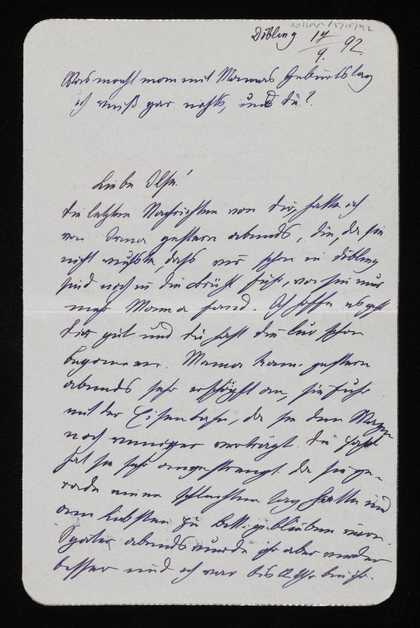 Döbling 17/9. 92
Was macht man mit Mamas Geburtstag
ich weiß gar nichts, und du?
Liebe Olga!
die letzten Nachrichten von dir, hatte ich
von gestern abends, die, da sie
nicht wußte, daß wir schon in Döbling
sind noch in die fuhr, wo sie nur
mehr Mama fand. Ich hoffe es geht
dir gut und du hast die Cur schon
begonnen. Mama kam gestern
abends sehr erschöpft an, sie fuhr
mit der Eisenbahn, da sie den Wagen
noch weniger verträgt die Fahrt
hat sie sehr angestrengt da sie ge-
rade einen schlechten Tag hatte und
am liebsten zu Bett geblieben wäre.
Später abends wurde ihr aber wieder
besser und ich war bis Uhr bei ihr.